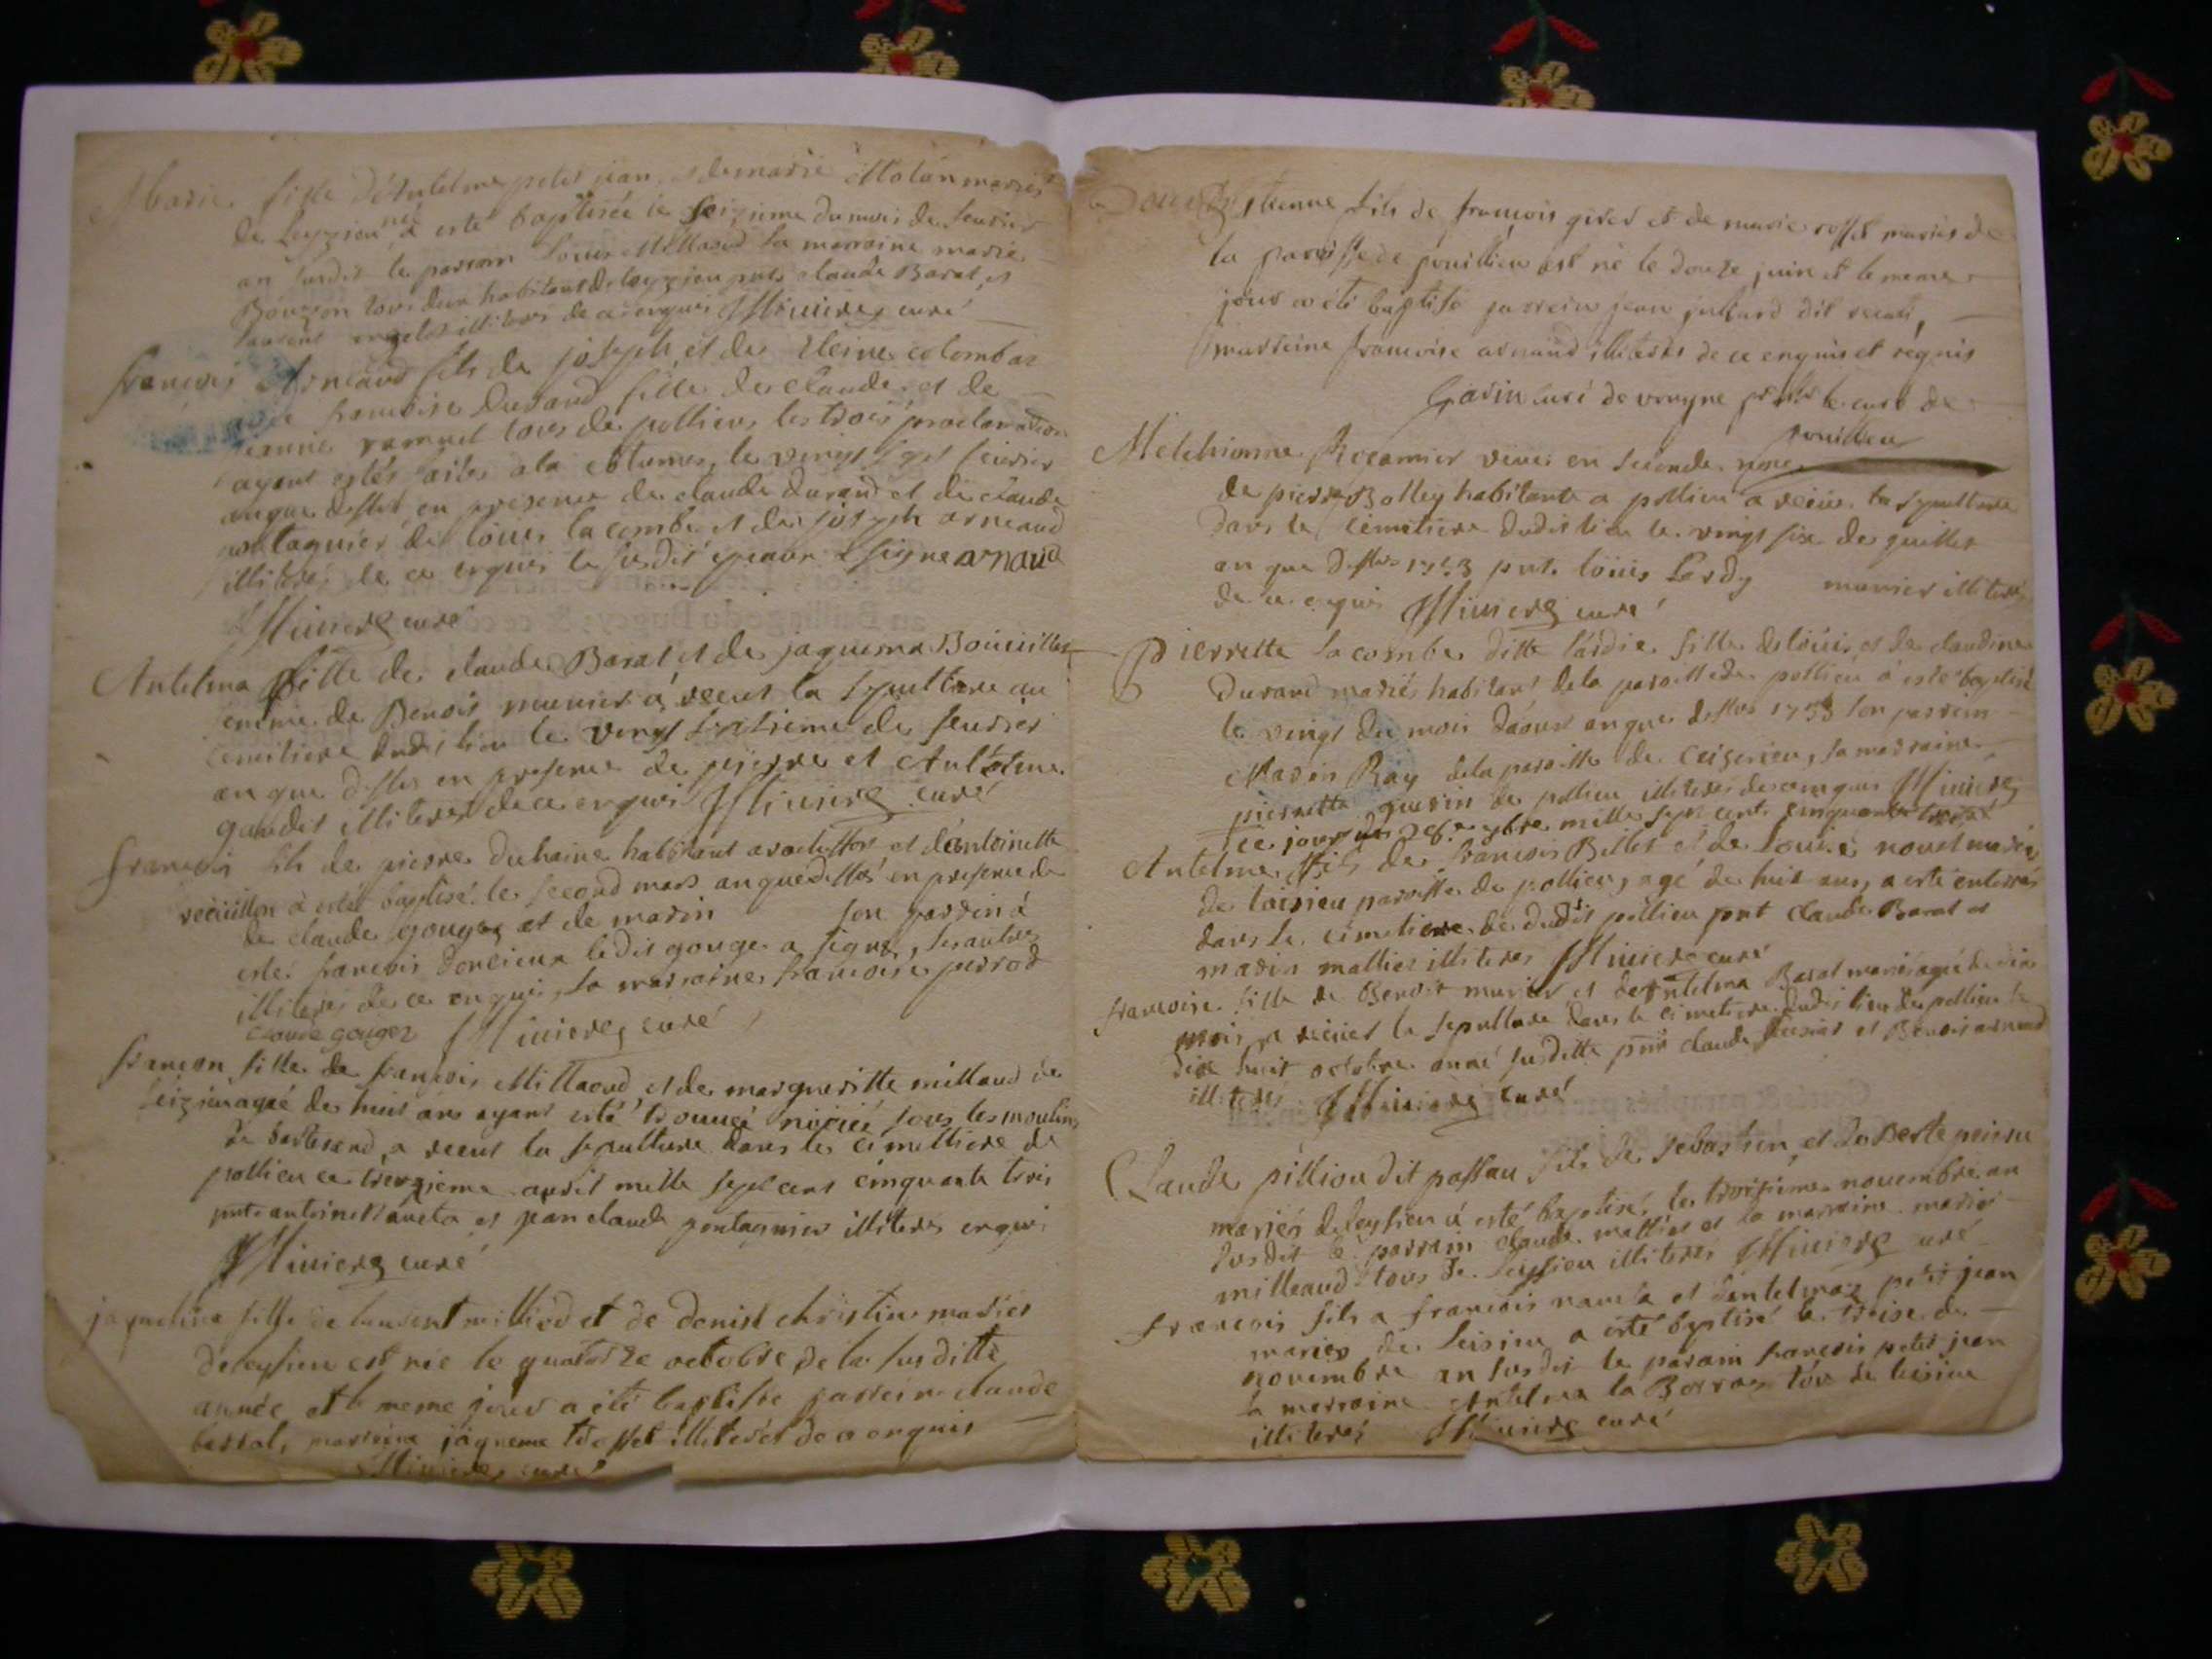 Marie fille d'Antelme petit jean et de marie Molan mariés
de Leyzieu née a esté baptisée le seizieme du mois de feurier
an susdit le parrain Louis Millaud la marraine marie
Bouzon tous deux habitant de leyzieu pnts claude Barat et
laurent illiteres de ce enquis Miuiere curé
francois Arneaud fils de joseph et de cleine colombat
avec francoise Durand fille de claude et de
jeanne ramuel tous de pollieu, les trois proclamations
ayant estés faites a la cotume, le vingt sept feurier
an que dessus en presence de claude durand et de claude
pontagnier de louis la combe et de joseph arneaud
illiteres de ce enquis le susdit epoux a signe arnaud
Miuiere curé
Antelma fille de claude Barat et de jaquema Bouuillet
femme de Benois munier a receut la sepulture au
cemitiere dudit lieu le vingt huitieme de feurier
an que dessus en presence de pierre et Antelme
gaudet illiteres de ce enquis Miuiere curé
francois fils de pierre duhaine habitant et d'antoinette
reciuillon a esté baptisé le second mars an que dessus en presence de
de claude gouges et de marin son parrin a
esté francois doncieux ledit gouge a signe, les autres
illiteres de ce enquis, la marraine francoise perrod
Claude gouges Miuiere curé
francon fille de francois Millaoud, et de margueritte millaud de
leizieu agée de huit ans ayant esté trouuée noiiée sous les moulins
de barterand, a receut la sepulture dans les cimettiere de
pollieu ce treizieme avril mille sept cent cinquante trois
pnts antoine naueta et jean claude pontagnier illiteres enquis
Miuiere curé
jaquelina fille de laurent milliod et de denise christin mariés
de leysieu est née le quatorze octobre de la susditte
année et le meme jour a été baptisée parrein claude
barrat, marreine jaqueme trosset illiterés de ce enquis
Miuiere curé
Etienne fils de francois giret et de marie rosset mariés de
la paroisse de pouillieu est né le douze juin et le meme
jour a été baptisé parrein jean juillard dit
marreine francoise arnaud illiterés de ce enquis et requis
Garin curé de vongne pr le curé de
pouillieu
Melchionne Recamier veuue en seconde
de pierre Bolley habitante a pollieu a receu la sepulture
dans le cimetiere dudit lieu le vingt six de juillet
an que dessus 1753 pnts louis Lardy munier illiterés
de ce enquis Miuiere curé
Pierrette la combe ditte lardie fille de louis et de claudine
Durand mariés habitant de la paroisse de pollieu a esté baptisée
le vingt du mois d'aoust an que dessus 1753 son parrein
Marin Ray de la paroisse de ceiserieu, sa marraine
pierrette guerin de pollieu illiteres de ce enquis Miuiere
ce jour mille sept cent cinquante trois
Antelme fils de francois Billet et de Louise nouet mariés
de loisieu paroisse de pollieu, agé de huit ans, a esté enterrés
dans le cimetiere de dudit pollieu pnt claude Barat et
marin mattier illiteres Miuiere curé
francoise fille de Benoit munier et de Antelma Barat mariés agée de dix
mois, a receut la sepulture dans le cimetiere dudit lieu de pollieu le
dixe huit octobre année susditte pnts claude et Benois arneaud
illiteres Miuiere curé
Claude pilliou dit passau fils de sebastien, et de Berte peisne
mariés de leysieu a esté baptisé le troisieme nouembre an
susdit le parrain claude mattier et la marraine marie
milleaud tous de leyssieu illiteres Miuiere curé
francois fils a francois naueta et d'antelmaz petit jean
mariés de leisieu a esté baptisé le treise de
nouembre an susdit le parain francois petit jean
la marraine Antelma la Borray tous de leisieu
illiterés Miuiere curé